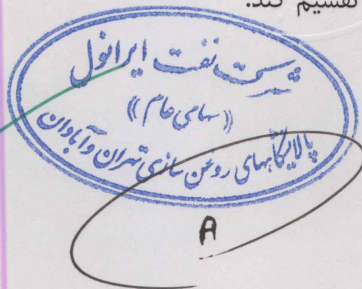 تقسیم کند.
شرکت نفت ایرانول
«سهامی عام»
پالایشگاههای روغن سازی تهران و آبادان
A